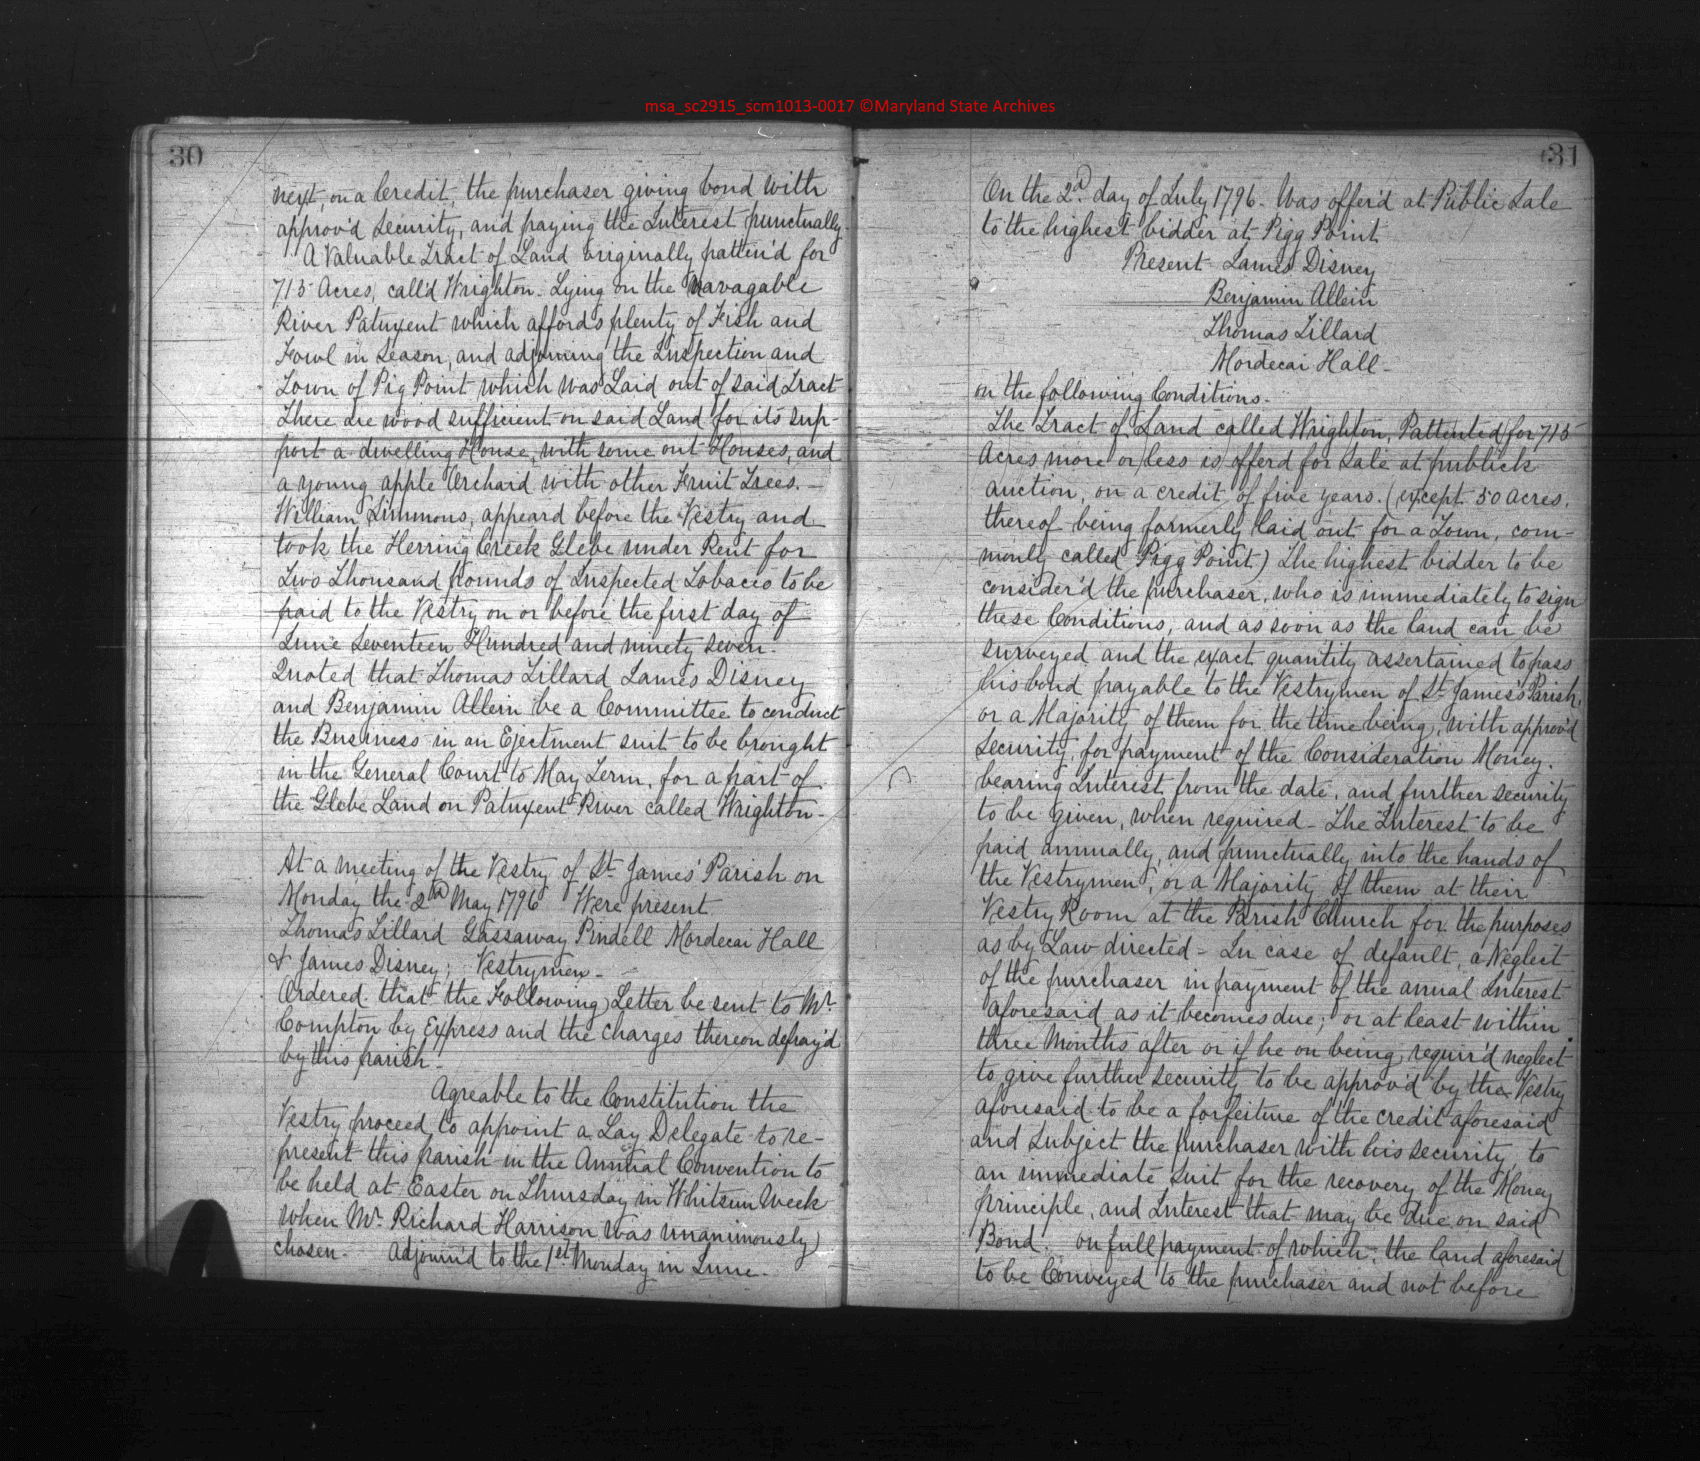 msa_sc2915_scm1013-0017 ©Maryland State Archives
30
next, on a Credit, the purchaser giving bond with
approv'd Security, and paying the Interest punctually.
A Valuable Tract of Land originally patten'd for
715 Acres, call'd Wrighton. Lying on the Navagable
River Patuxent which affords plenty of Fish and
Fowl in Season, and adjoining the Inspection and
Town of Pig Point which was Laid out of said Tract
There are wood sufficient on said Land for its sup-
port a dwelling House, with some out Houses, and
a young apple Orchard with other Fruit Trees. —
William Simmons, appeard before the Vestry and
took the Herring Creek Glebe under Rent for
Two Thousand pounds of Inspected Tobacco to be
paid to the Vestry on or before the first day of
June Seventeen Hundred and ninety seven.
Quoted that Thomas Tillard James Disney
and Benjamin Allein be a Committee to conduct
the Business in an Ejectment suit to be brought
in the General Court to May Term, for a part of
the Glebe Land on Patuxent River called Wrighton -
At a meeting of the Vestry of St. James' Parish on
Monday the 2nd May 1796 Were present
Thomas Tillard Gassaway Pindell Mordecai Hall
& James Disney; Vestrymen -
Ordered that the Following Letter be sent to Mr.
Compton by Express and the charges thereon defray'd
by this parish -
Agreable to the Constitution the
Vestry proceed to appoint a Lay Delegate to re-
present this parish in the Annual Convention to
be held at Easter on Thursday in Whitsun Week
when Mr. Richard Harrison was unanimously
chosen. Adjourn'd to the 1st Monday in June.
31
On the 2d. day of July 1796. Was offer'd at Public Sale
to the highest bidder at Pigg Point
Present James Disney
Benjamin Allein
Thomas Tillard
Mordecai Hall -
on the following Conditions.
The Tract of Land called Wrighton, Pattented for 715
Acres more or less is offerd for Sale at publick
auction, on a credit of five years. (except 50 acres.
thereof being formerly laid out for a Town, com-
monly called Pigg Point.) The highest bidder to be
consider'd the purchaser, who is immediately to sign
these Conditions, and as soon as the land can be
surveyed and the exact quantity assertained to pass
his bond payable to the Vestrymen of St. James's Parish,
or a Majority of them for the time being, with approv'd
Security, for payment of the Consideration Money.
bearing Interest from the date, and further security
to be given, when required - The Interest to be
paid annually, and punctually into the hands of
the Vestrymen, or a Majority of them at their
Vestry Room at the Parish Church for the purposes
as by Law directed - In case of default, a Neglect
of the purchaser in payment of the anual Interest
aforesaid as it becomes due; or at least within
three Months after or if he on being requir'd neglect
to give further Security to be approv'd by the Vestry
aforesaid to be a forfeiture of the credit aforesaid
and Subject the purchaser with his security, to
an immediate Suit for the recovery of the Money
principle, and Interest that may be due on said
Bond. on full payment of which, the land aforesaid
to be Conveyed to the purchaser and not before